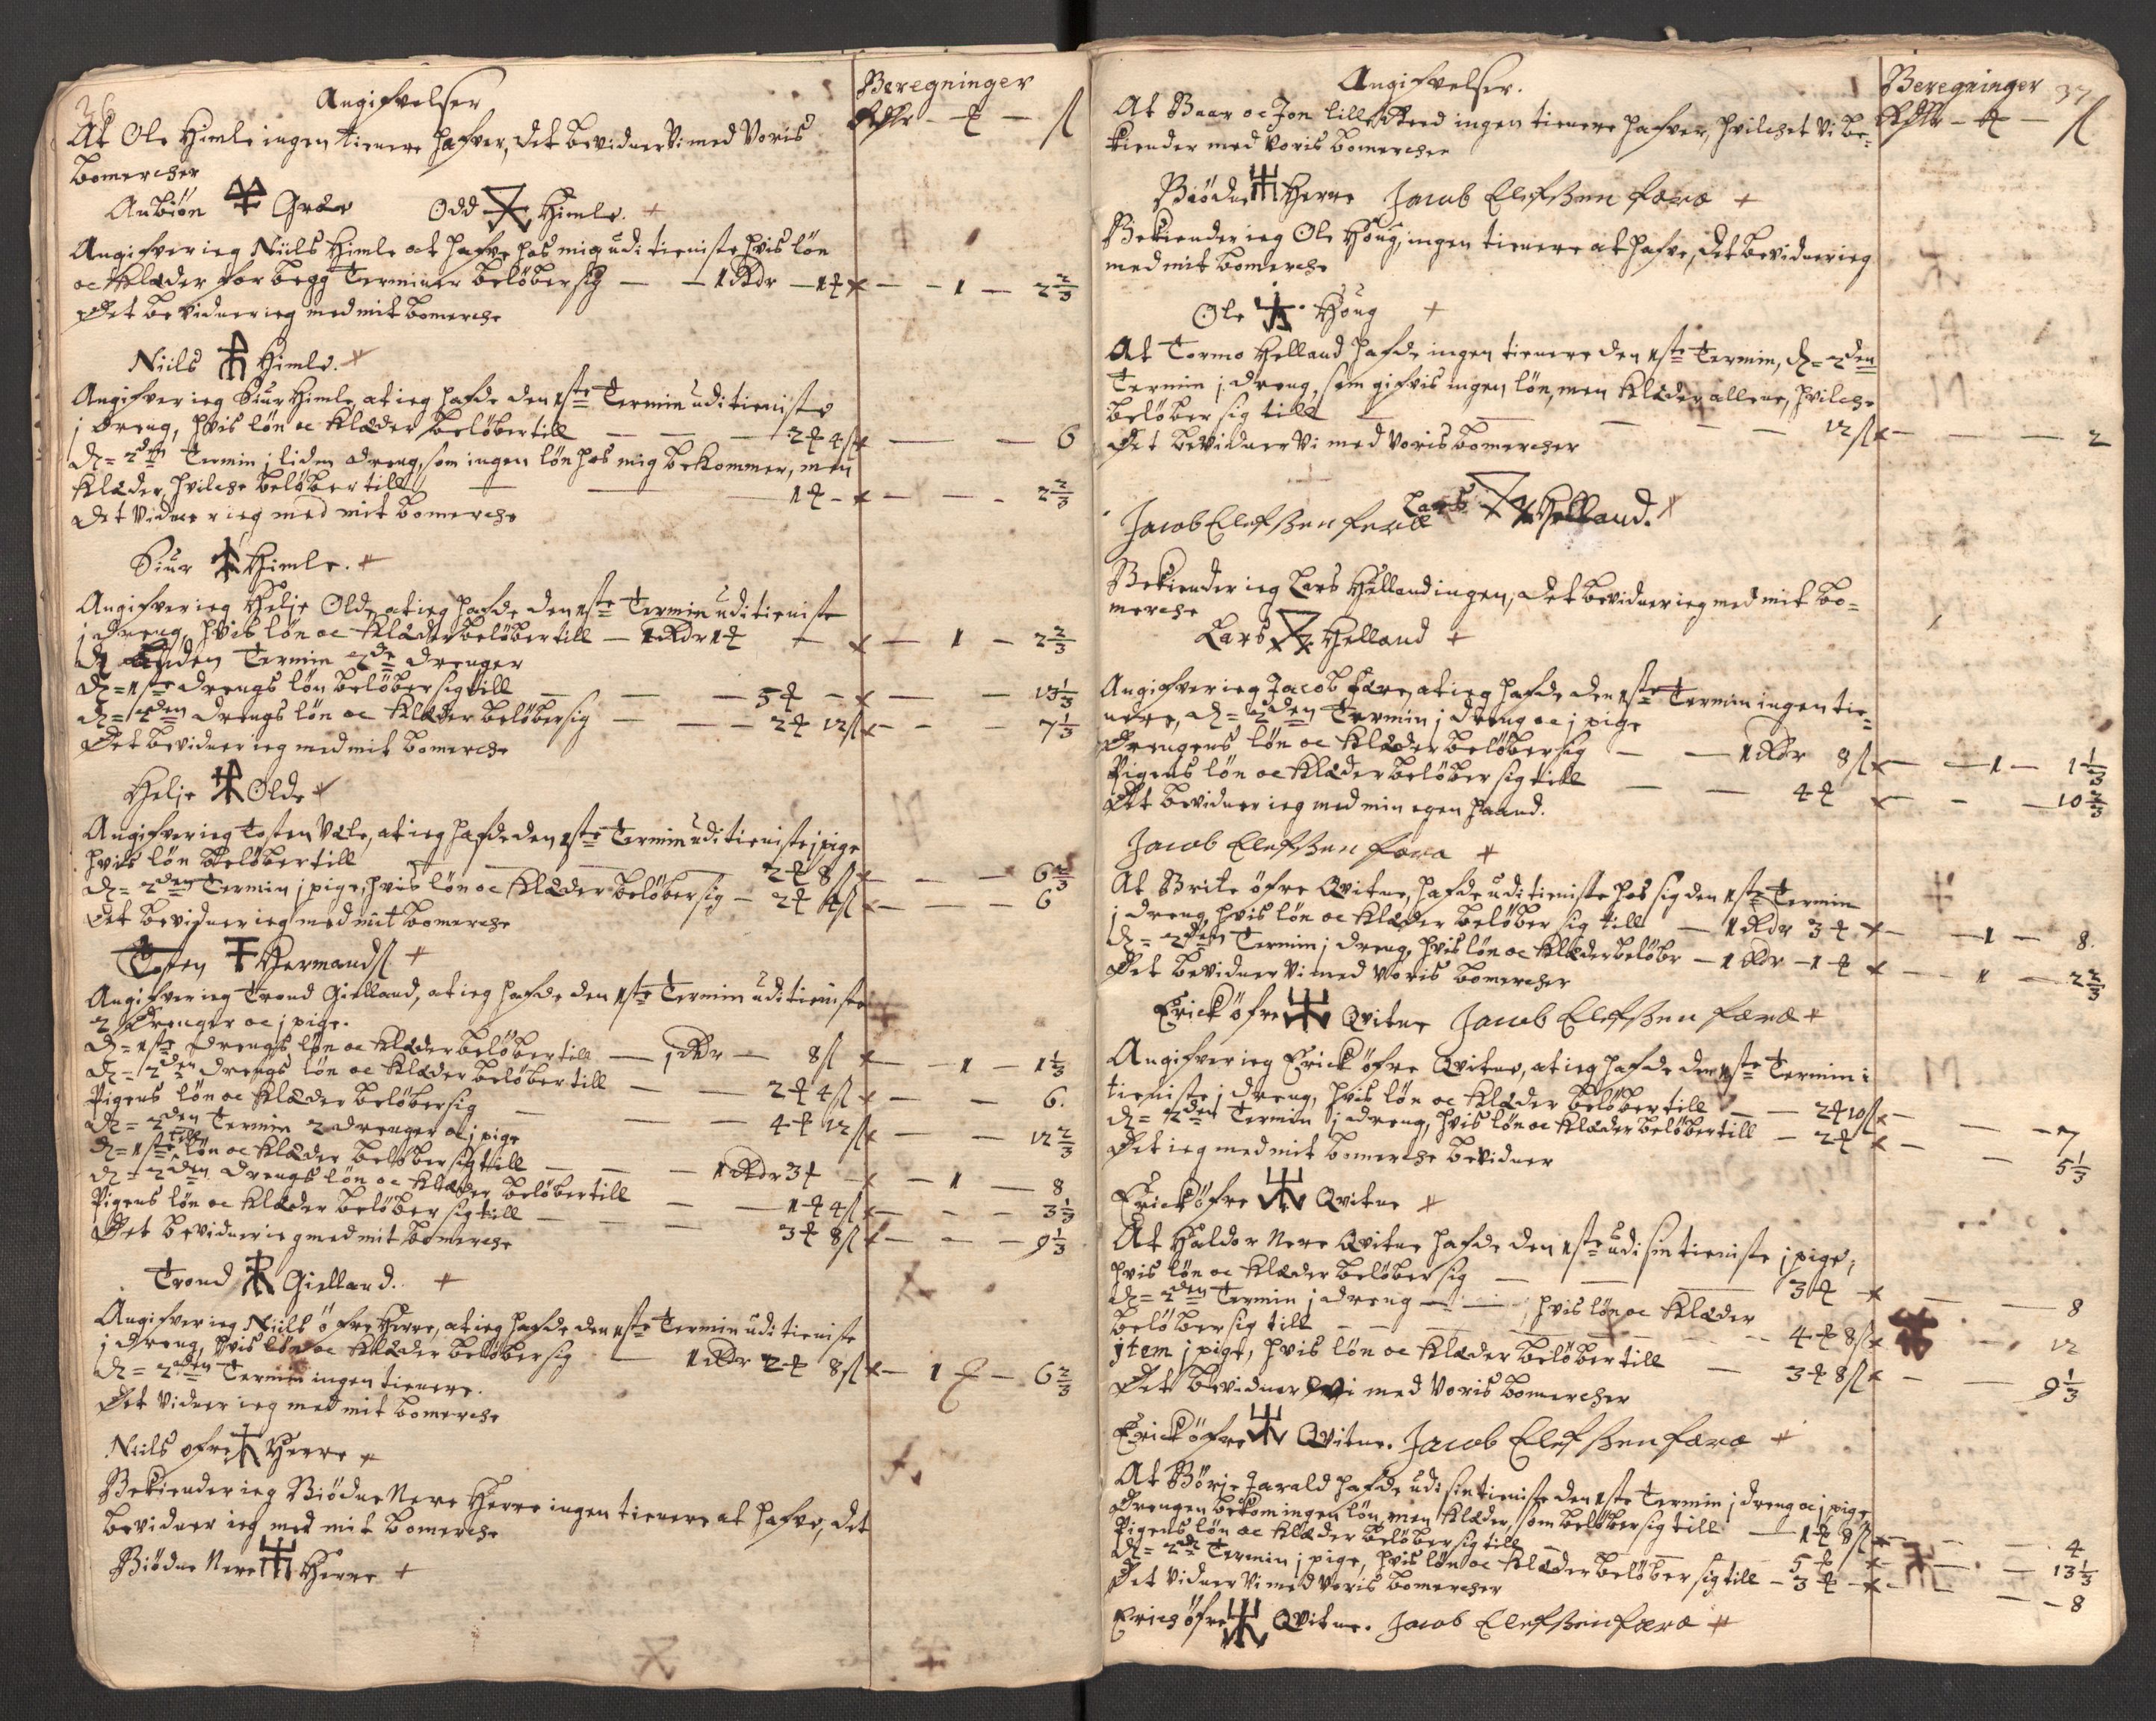 36
Angifvelser
Beregninger
Rdr - ꝑ - ſl
At Ole Himle ingen tienere hafver, det bevidner Vi med Voris
bomercher
Anbiön Græe Odd Himle.
Angifver ieg Niils Himle at hafve hos mig udi tieniste hvis lön
oc Klæder for begge Terminer belöber sig — 1 Rdr — 1 ꝑ — 1 — 2 2/3
Det bevidner ieg med mit bomerche
Niils Himle.
Angifver ieg Siur Himle, at ieg hafde den 1ste Termin udi tieniste
j dreng, hvis lön oc Klæder belöber till — 2 ꝑ 4 ſl — 6
d= 2den Termin j liden dreng, som ingen lön hos mig bekommer, men
Klæder, hvilche belöber till — 1 ꝑ — 2 2/3
det Vidner ieg med mit bomerche
Siur Himle.
Angifver ieg Helje Olde at ieg hafde den 1ste Termin udi tieniste
j dreng, hvis lön oc Klæder belöber till — 1 Rdr 1 ꝑ — 1 — 2 2/3
d anden Termin 2de drenger
d= 1ste drengs lön belöber sig till — 5 ꝑ — 13 1/3
d= 2den drengs lön oc Klæder belöber sig — 2 ꝑ 12 ſl — 7 1/3
Det bevidner ieg med mit bomerche
Helje Olde
Angifver ieg Tosten Væle, at ieg hafde den 1ste Termin udi tieniste j pige
hvis lön belöber till — 2 ꝑ 8 ſl — 6 2/3
d= 2den Termin j pige, hvis lön oc Klæder belöber sig — 2 ꝑ 4 ſl — 6
Det bevidner ieg med mit bomerche
Tosten Hermandſl
Angifver ieg Trond Gielland, at ieg hafde den 1ste Termin udi tieniste
2 Drenger oc j pige.
d= 1ste drengs lön oc Klæder belöber till — 1 Rdr — 8 ſl — 1 — 1 1/3
d= 2den drengs lön oc Klæder belöber till — 2 ꝑ 4 ſl — 6.
Pigens lön oc Klæder belöber sig — 4 ꝑ 12 ſl — 12 2/3
d= 2den Termin 2 drenger oc j pige
d= 1stes lön oc Klæder belöber sig till — 1 Rdr 3 ꝑ — 1 — 8
d= 2den drengs lön oc Klæder belöber till — 1 ꝑ 4 ſl — 3 1/3
Pigens lön oc Klæder belöber sig till — 3 ꝑ 8 ſl — 9 1/3
Det bevidner ieg med mit bomerche
Trond Gielland.
Angifver ieg Niils öfre Herre, at ieg hafde den 1ste Termin udi tieniste
j dreng, hvis lön oc Klæder belöber sig — 1 Rdr 2 ꝑ 8 ſl — 1 — 6 2/3
d= 2den Termin ingen tienere.
Det vidner ieg med mit bomerche
Niils öfre Herre
Bekiender ieg Biödne Nere Herre ingen tienere at hafve, det
bevidner ieg med mit bomerche
Biödne Nere Herre
37
Angifvelser.
Beregninger
Rdr - ꝑ - ſl
At Baar oc Jon lille Reed ingen tienere hafver, hvilchet Vi be=
kiender med Voris bomercher
Biödne Herre Jacob Elefßen færæ
Bekiender ieg Ole Houg, ingen tienere at hafve, det bevidner ieg
med mit bomerche
Ole Houg
At Tormo Helland hafde ingen tienere den 1ste Termin, d= 2den
Termin j dreng, som gifvis ingen lön, men Klæder allene, hvilche
belöber sig till — 12 ſl — 2
Det bevidner Vi med Voris bomercher
Jacob Elefßen færæ Lars Helland.
Bekiender ieg Lars Helland ingen, det bevidner ieg med mit bo=
merche
Lars Helland
Angifver ieg Jacob Fære, at ieg hafde den 1ste Termin ingen tie=
nere, d= 2den Termin j dreng oc j pige
Drengens lön oc Klæder belöber sig — 1 Rdr 8 ſl — 1 — 1 1/3
Pigens lön oc Klæder belöber sig till — 4 ꝑ — 10 2/3
Det bevidner ieg med min egen haand.
Jacob Elefßen færa
At Brite öfre Qvitne, hafde udi tieniste hos sig den 1ste Termin
j dreng, hvis lön oc Klæder belöber sig till — 1 Rdr 3 ꝑ — 1 — 8.
d= 2den Termin j dreng, hvis lön oc Klæder belöbr — 1 Rdr — 1 ꝑ — 1 — 2 2/3
Det bevidner Vi med Voris bomercher
Erick öfre Qvitne Jacob Elefßen færæ
Angifver ieg Erick öfre Qvitne, at ieg hafde den 1ste Termin i
tieniste j dreng, hvis lön oc Klæder belöber till — 2 ꝑ 10 ſl — 7
d= 2den Termin j dreng, hvis lön oc Klæder belöber till — 2 ꝑ — 5 1/3
Det ieg med mit bomerche bevidner
Erick öfre Qvitne
At Haldor Nere Qvitne hafde den 1ste udi sin tieniste j pige,
hvis lön oc Klæder belöber sig — 3 ꝑ — 8
d= 2den Termin j dreng — hvis lön oc Klæder
belöber sig till — 4 ꝑ 8 ſl — 12
jtem j pige, hvis lön oc Klæder belöber till — 3 ꝑ 8 ſl — 9 1/3
Det bevidner Vi med Voris bomercher
Erick öfre Qvitne. Jacob Elefßen færæ
At Börje Jarald hafde udi sin tieniste den 1ste Termin j dreng oc j pige
Drengen bekom ingen lön, men Klæder, som belöber sig till — 1 ꝑ 8 ſl — 4
Pigens lön oc Klæder belöber sig till — 5 ꝑ — 13 1/3
d= 2den Termin j pige, hvis lön oc Klæder belöber sig till — 3 ꝑ — 8
Det vidner Vi med Voris bomercher
Erich öfre Qvitne. Jacob Elefßen færæ